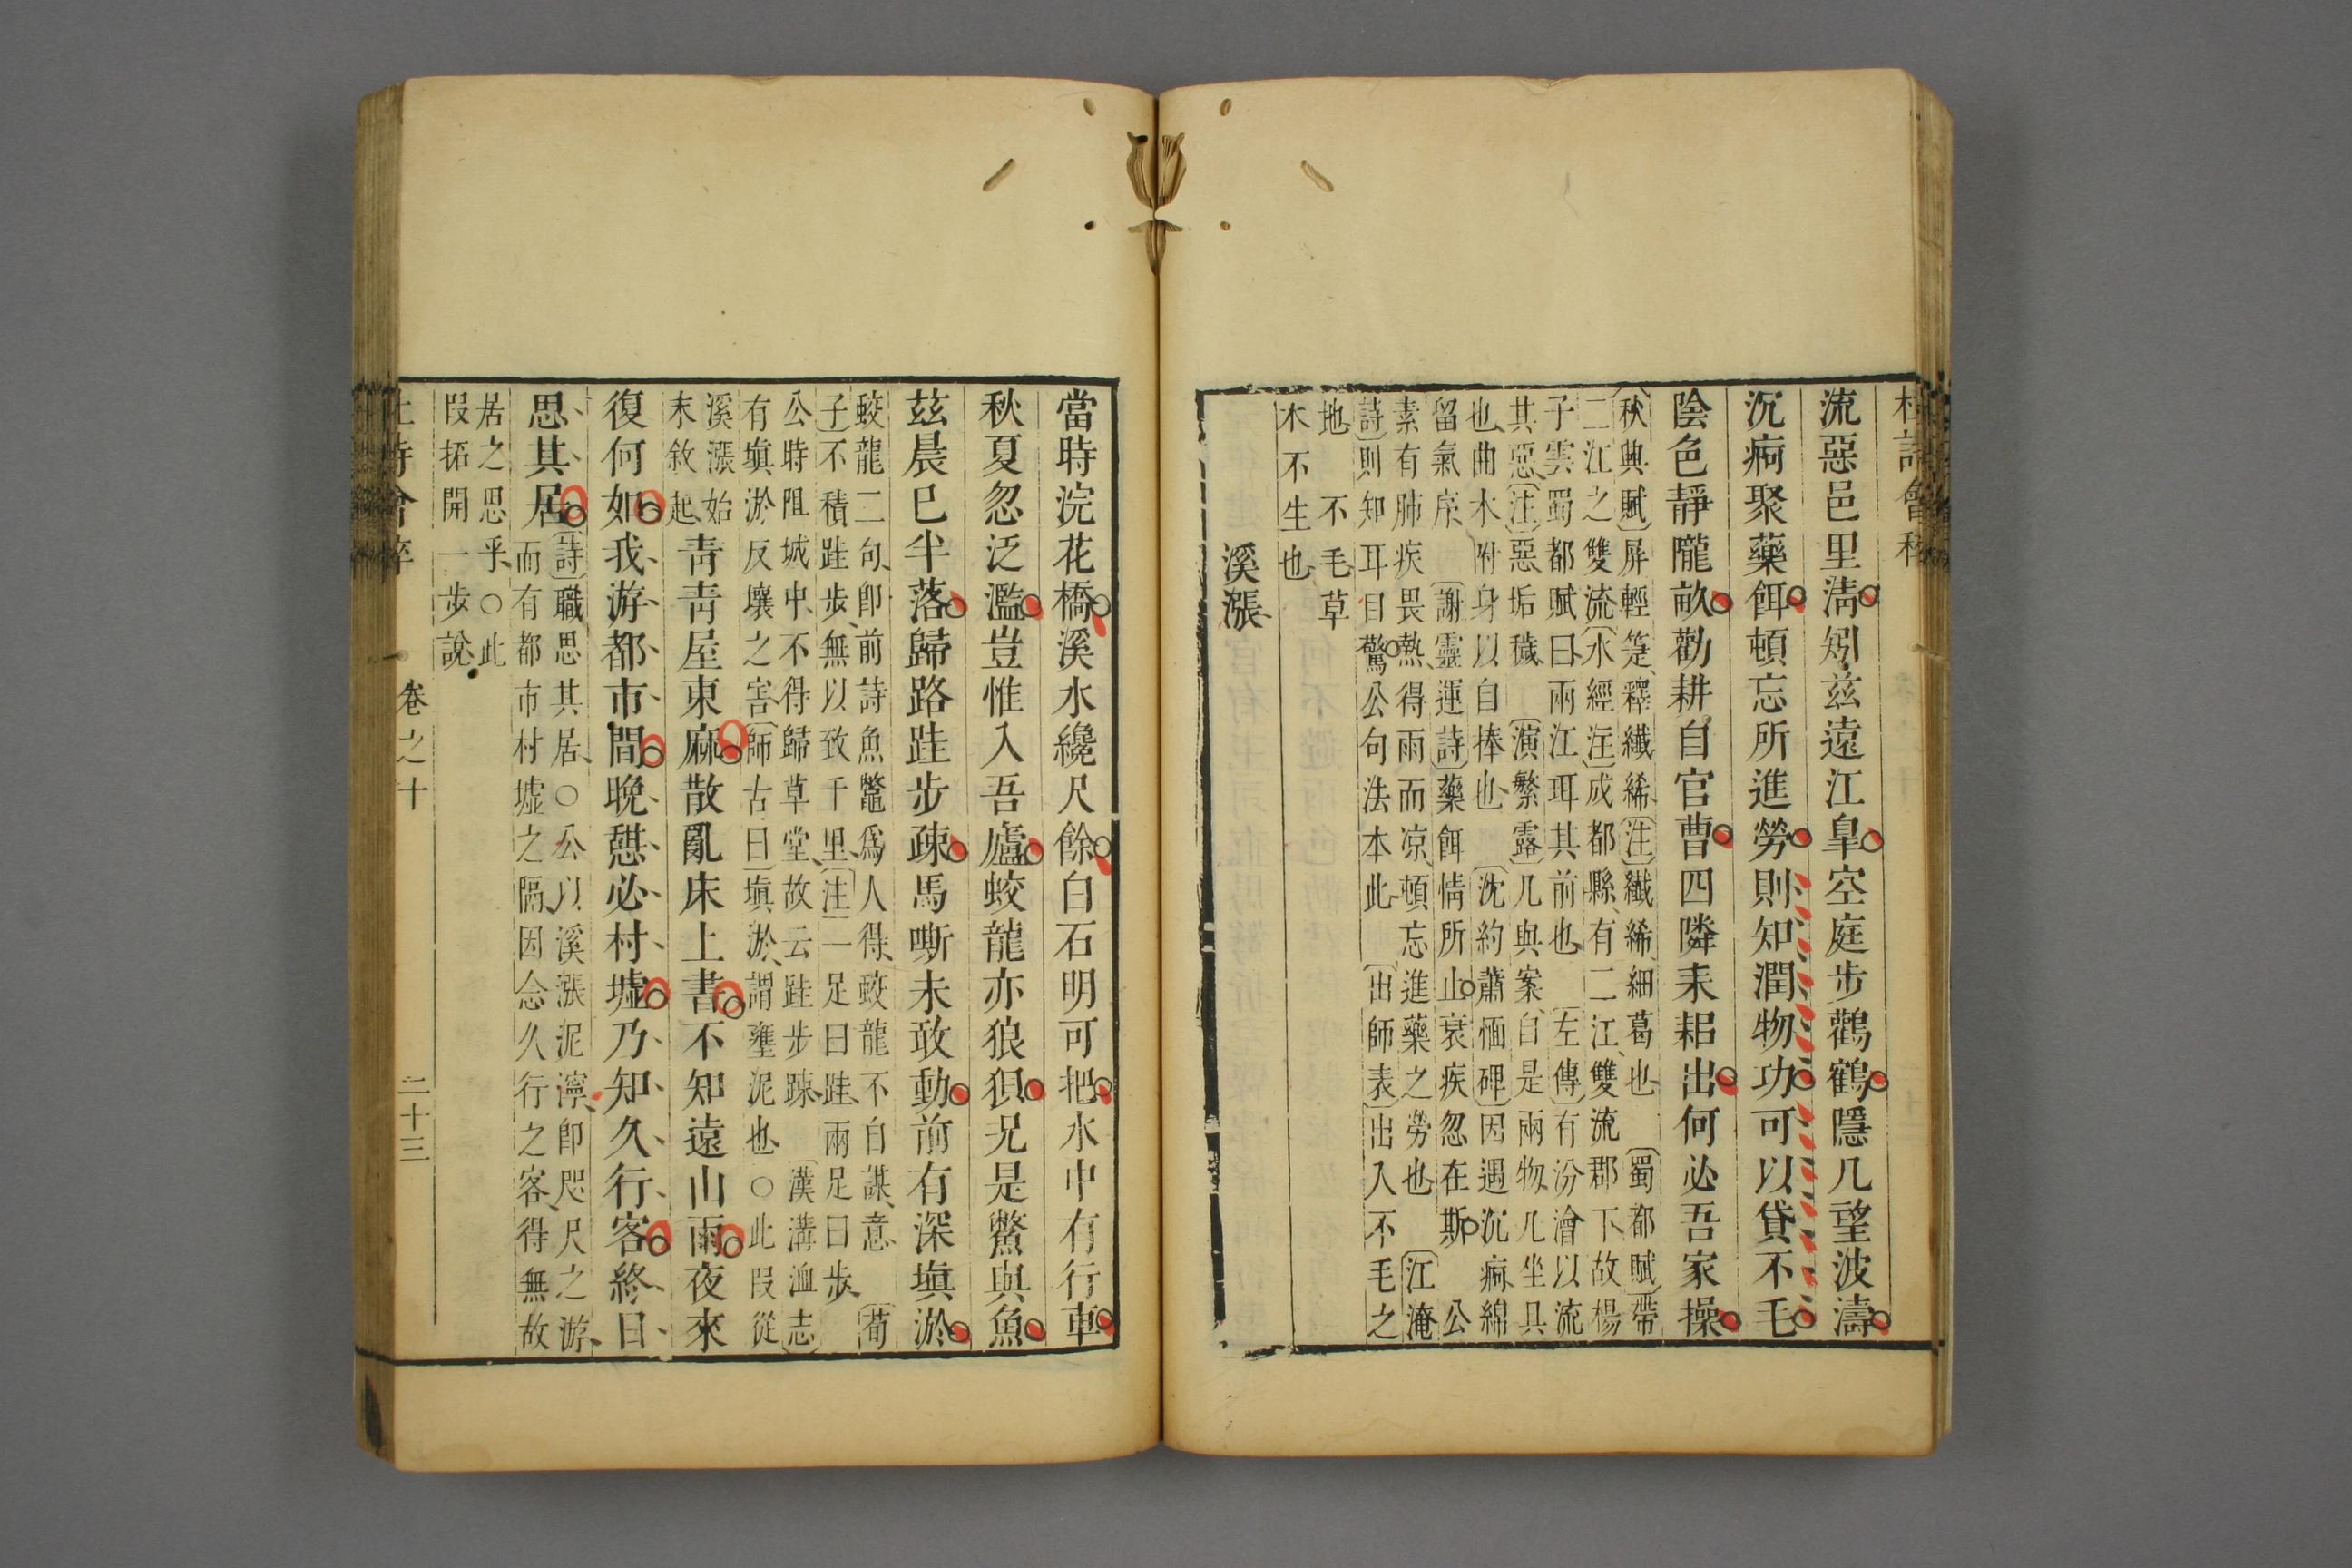 杜詩會稡
流惡邑里清矧兹遠江臯空庭步鸛鶴隱几望波濤
沉痾聚藥餌頓忘所進勞則知潤物功可以貸不毛
陰色靜隴畝勸耕自官曹四隣耒耜出何必吾家操
〔秋興賦〕屏輕箑、釋纎絺、〔注〕纎絺、細葛也〔蜀都賦〕帶
二江之雙流〔水經注〕成都縣、有二江、雙流郡下故楊
子雲蜀都賦曰兩江珥其前也〔左傳〕有汾澮以流
其惡、〔注〕惡垢穢、〔演繁露〕几與案、自是兩物、几坐具
也、曲木附身以自捧也、〔沈約蕭愐碑〕因遇沉痾、綿
留氣序、〔謝靈運詩〕藥餌情所止衰疾忽在斯公
素有肺疾畏熱、得雨而凉、頓忘進藥之勞也〔江淹
詩〕則知耳目驚公句法本此〔出師表〕出入不毛之
地不毛草
木不生也
溪漲
當時浣花橋溪水纔尺餘白石明可把水中有行車
秋夏忽泛濫豈惟入吾廬蛟龍亦狼狽况是鱉與魚
兹晨已半落歸路跬步疎馬嘶未敢動前有深塡淤
蛟龍二句、卽前詩魚鼈爲人得、蛟龍不自謀、意〔荀
子〕不積跬步、無以致千里、〔注〕一足曰跬、兩足曰步、
公時阻城中、不得歸草堂、故云跬步疎、〔漢溝洫志〕
有塡淤反壤之害、〔師古曰〕塡淤、謂壅泥也○此段從
溪漲始
末敘起、
青青屋東麻散亂床上書不知遠山雨夜來
復何如我游都市間晚憇必村墟乃知久行客終日
思其居
〔詩〕職思其居、○公以溪漲泥濘、卽咫尺之游、
而有都市村墟之隔、因念久行之客、得無故
居之思乎、○此
段拓開一步說、
卷之十
二十三